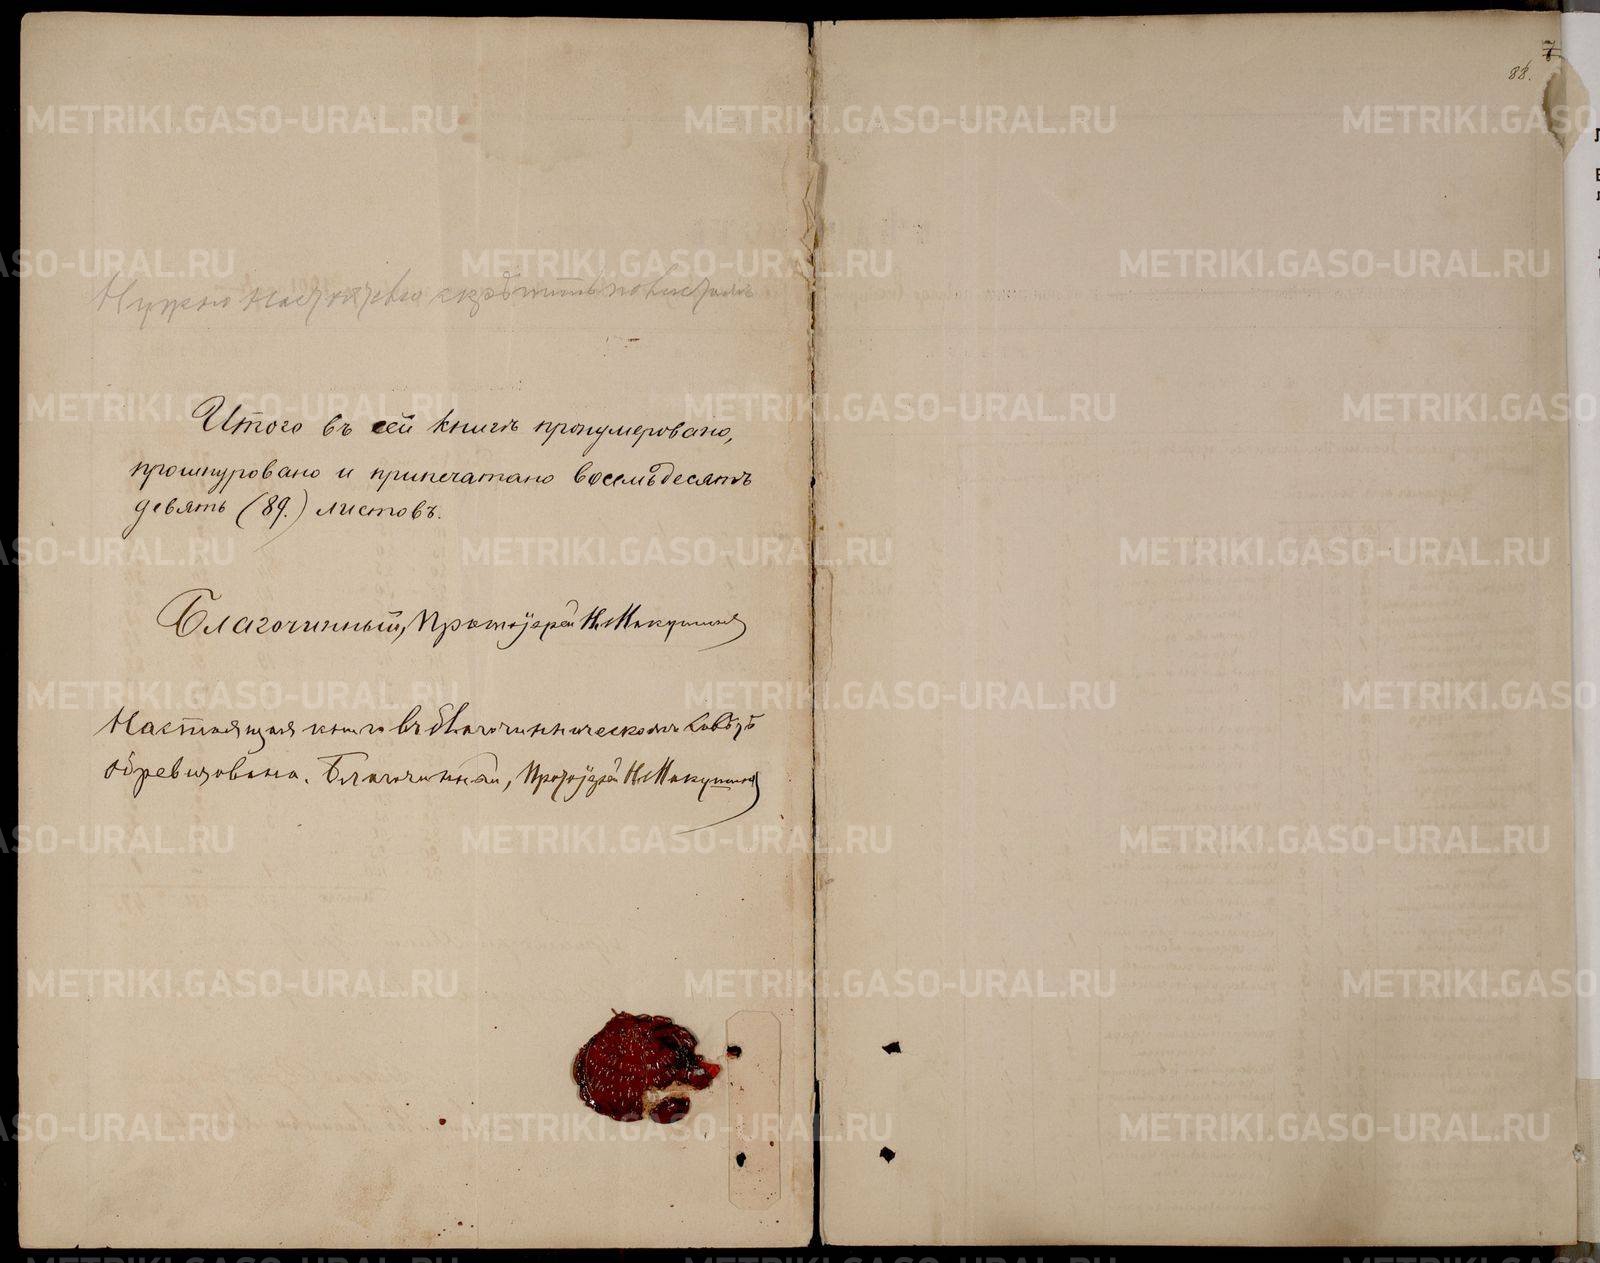 Нужно скрѣпить по листамъ
Итого въ сей книгѣ пронумеровано,
прошнуровано и припечатано восемьдесятъ
девять (89.) листовъ.
Благочинный, Протоіерей Н. Макушинъ
Настоящая книга въ благочинническомъ Совѣтѣ
обревизована. Благочинный, Протоіерей Н. Макушинъ
88.
METRIKI.GASO-URAL.RU